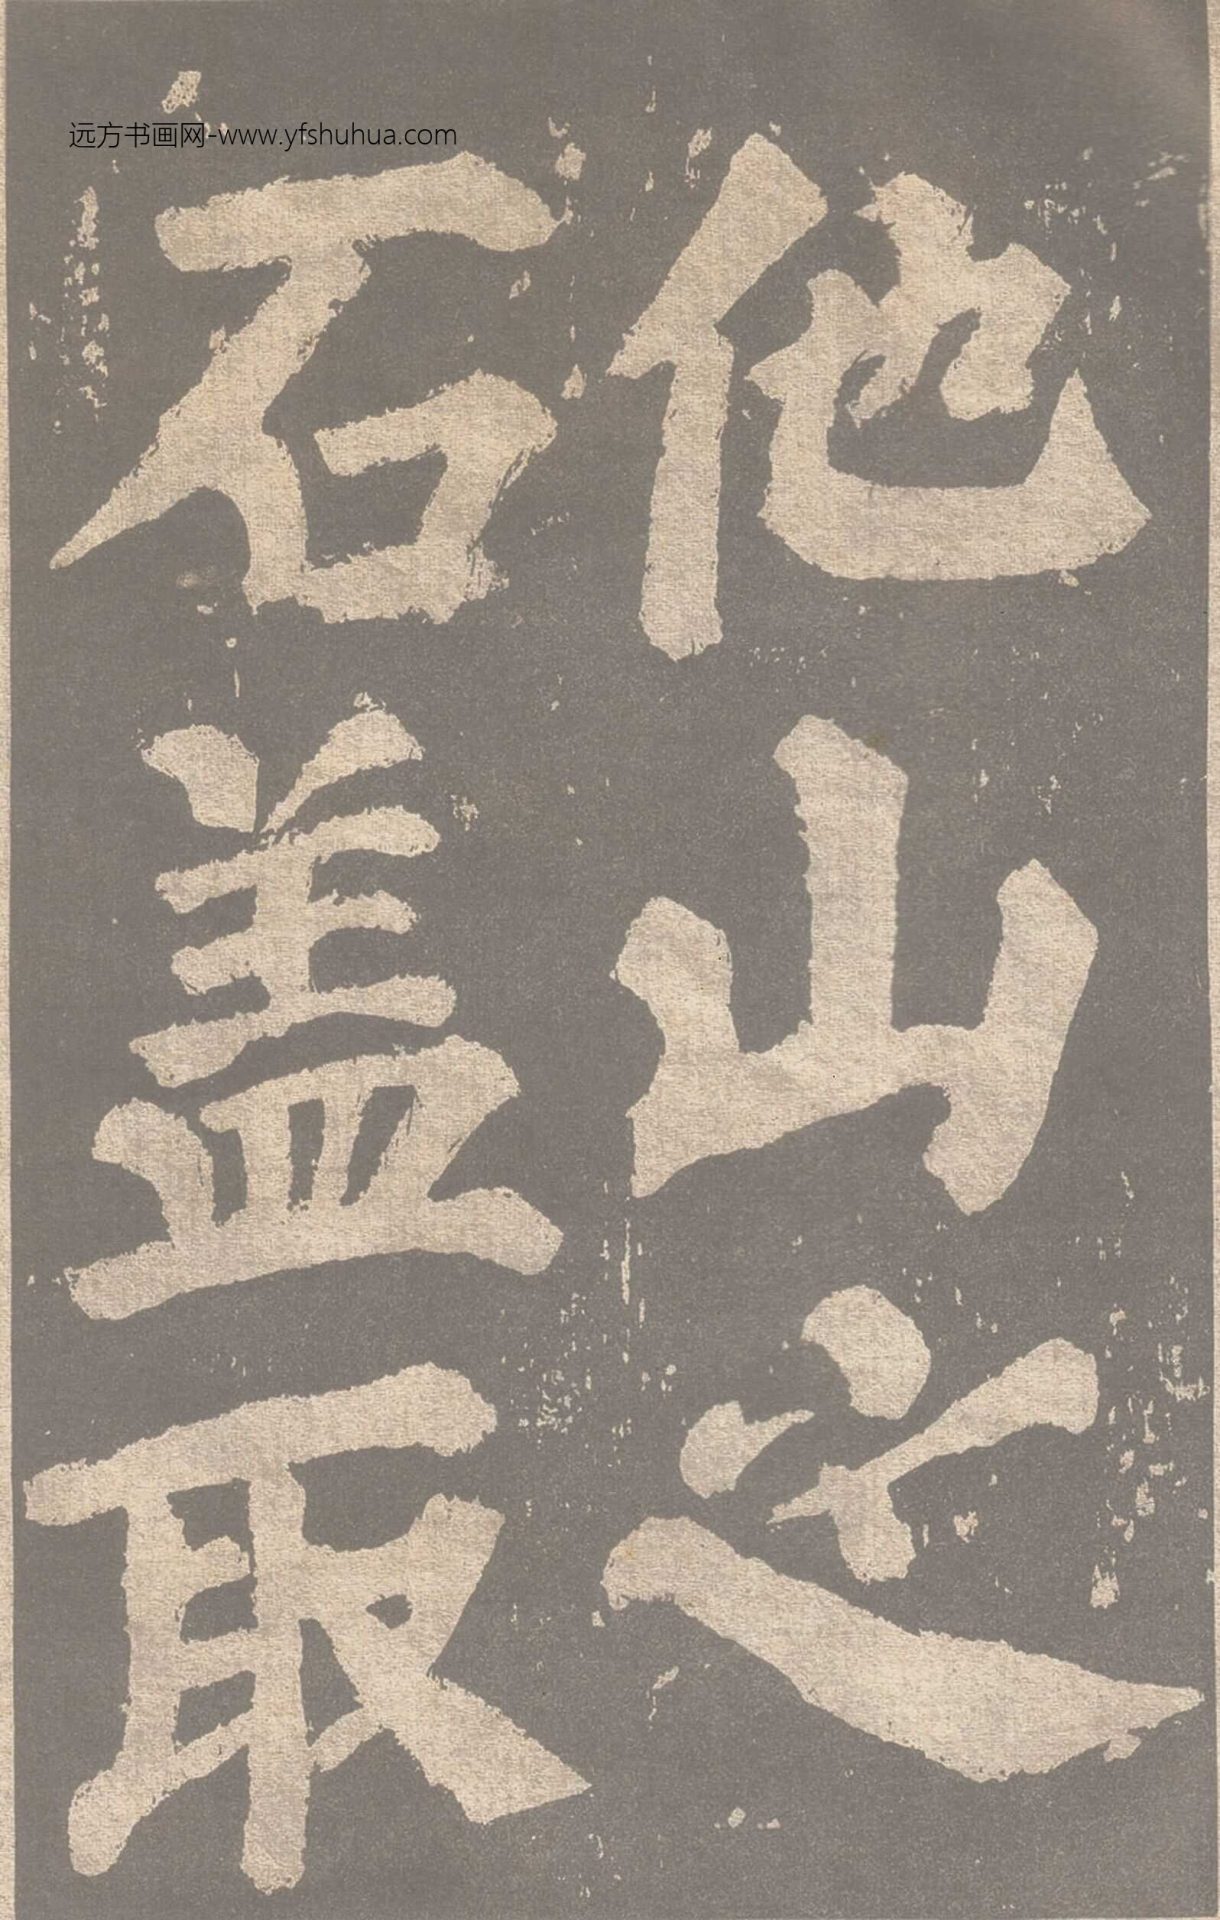 远方书画网-www.yfshuhua.com
他山之
石盖取